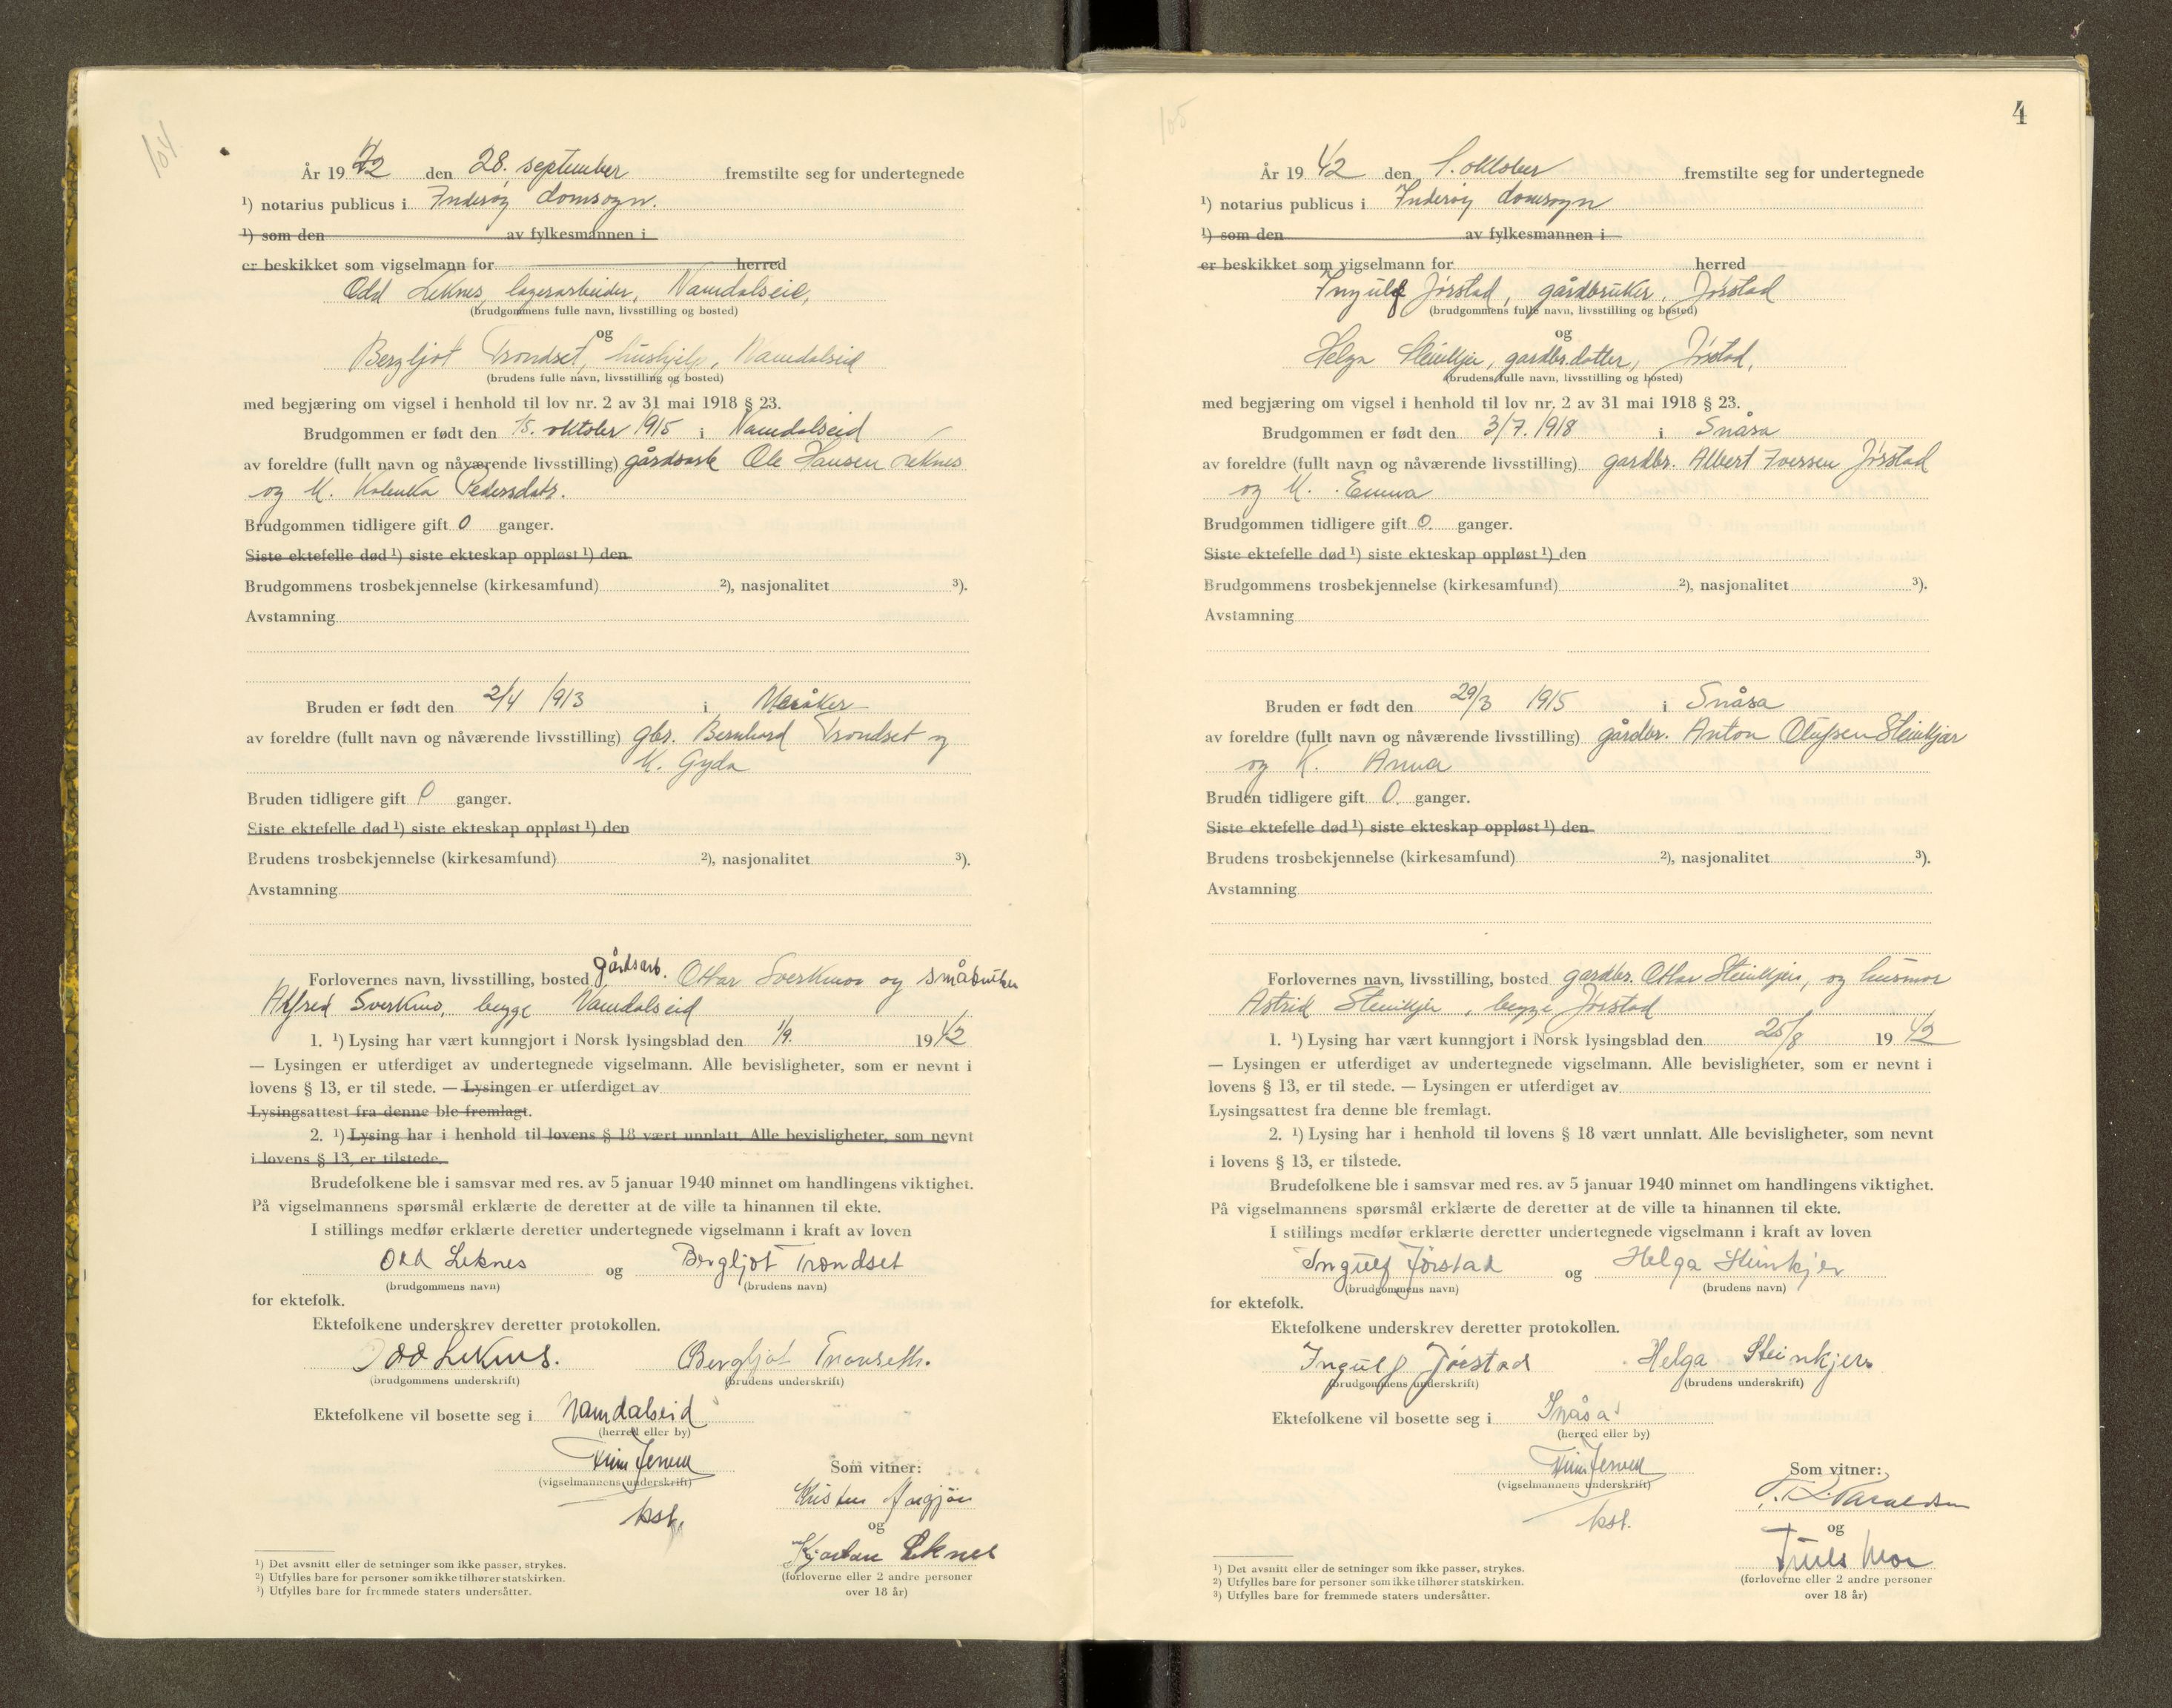 104
År 19 42 den 28. september fremstilte seg for undertegnede
¹) notarius publicus i Inderøy domsogn.
¹) som den av fylkesmannen i
er beskikket som vigselmann for herred
Odd Leknes, lagerarbeider, Namdalseid,
(brudgommens fulle navn, livsstilling og bosted)
og
Bergljot Trondset, hushjelp, Namdalseid
(brudens fulle navn, livsstilling og bosted)
med begjæring om vigsel i henhold til lov nr. 2 av 31 mai 1918 § 23.
Brudgommen er født den 15. oktober 1915 i Namdalseid
av foreldre (fullt navn og nåværende livsstilling) gårdsarb. Ole Hansen Leknes
og K. Pedersdatr.
Brudgommen tidligere gift 0 ganger.
Siste ektefelle død ¹) siste ekteskap oppløst ¹) den
Brudgommens trosbekjennelse (kirkesamfund) ²), nasjonalitet ³).
Avstamning
Bruden er født den 2/4 1913 i Meråker
av foreldre (fullt navn og nåværende livsstilling) gbr. Bernhard Trondset og
K. Gyda
Bruden tidligere gift 0 ganger.
Siste ektefelle død ¹) siste ekteskap oppløst ¹) den
Brudens trosbekjennelse (kirkesamfund) ²), nasjonalitet ³).
Avstamning
Forlovernes navn, livsstilling, bosted gårdsarb. Ottar Sverkmo og småbruker
Alfred Sverkmo, begge Namdalseid
1. ¹) Lysing har vært kunngjort i Norsk lysingsblad den 1/9. 19 42
— Lysingen er utferdiget av undertegnede vigselmann. Alle bevisligheter, som er nevnt i
lovens § 13, er til stede. — Lysingen er utferdiget av
Lysingsattest fra denne ble fremlagt.
2. ¹) Lysing har i henhold til lovens § 18 vært unnlatt. Alle bevisligheter, som nevnt
i lovens § 13, er tilstede.
Brudefolkene ble i samsvar med res. av 5 januar 1940 minnet om handlingens viktighet.
På vigselmannens spørsmål erklærte de deretter at de ville ta hinannen til ekte.
I stillings medfør erklærte deretter undertegnede vigselmann i kraft av loven
Odd Leknes og Bergljot Trondset
(brudgommens navn) (brudens navn)
for ektefolk.
Ektefolkene underskrev deretter protokollen.
Odd Leknes. Bergljot Tronseth.
(brudgommens underskrift) (brudens underskrift)
Ektefolkene vil bosette seg i Namdalseid
(herred eller by)
(vigselmannens underskrift)
kst.
Som vitner:
og
Kjartan Leknes
(forloverne eller 2 andre personer
over 18 år)
¹) Det avsnitt eller de setninger som ikke passer, strykes.
²) Utfylles bare for personer som ikke tilhører statskirken.
³) Utfylles bare for fremmede staters undersåtter.
105
4
År 19 42 den 1. oktober fremstilte seg for undertegnede
¹) notarius publicus i Inderøy domsogn
¹) som den av fylkesmannen i
er beskikket som vigselmann for herred
Ingulf Jørstad, gårdbruker, Jørstad
(brudgommens fulle navn, livsstilling og bosted)
og
Helga Steinkjer, gardbr.datter, Jørstad,
(brudens fulle navn, livsstilling og bosted)
med begjæring om vigsel i henhold til lov nr. 2 av 31 mai 1918 § 23.
Brudgommen er født den 3/7. 1918 i Snåsa
av foreldre (fullt navn og nåværende livsstilling) gardbr. Albert Iversen Jørstad
og K. Emma
Brudgommen tidligere gift 0. ganger.
Siste ektefelle død ¹) siste ekteskap oppløst ¹) den
Brudgommens trosbekjennelse (kirkesamfund) ²), nasjonalitet ³).
Avstamning
Bruden er født den 29/3 1915 i Snåsa
av foreldre (fullt navn og nåværende livsstilling) gårdbr. Anton Olufsen Steinkjær
og K. Anna
Bruden tidligere gift 0. ganger.
Siste ektefelle død ¹) siste ekteskap oppløst ¹) den
Brudens trosbekjennelse (kirkesamfund) ²), nasjonalitet ³).
Avstamning
Forlovernes navn, livsstilling, bosted gardbr. Ottar Steinkjer, og husmor
Astrid Steinkjer, begge Jørstad
1. ¹) Lysing har vært kunngjort i Norsk lysingsblad den 25/8 19 42
— Lysingen er utferdiget av undertegnede vigselmann. Alle bevisligheter, som er nevnt i
lovens § 13, er til stede. — Lysingen er utferdiget av
Lysingsattest fra denne ble fremlagt.
2. ¹) Lysing har i henhold til lovens § 18 vært unnlatt. Alle bevisligheter, som nevnt
i lovens § 13, er tilstede.
Brudefolkene ble i samsvar med res. av 5 januar 1940 minnet om handlingens viktighet.
På vigselmannens spørsmål erklærte de deretter at de ville ta hinannen til ekte.
I stillings medfør erklærte deretter undertegnede vigselmann i kraft av loven
Ingulf Jørstad og Helga Steinkjer
(brudgommens navn) (brudens navn)
for ektefolk.
Ektefolkene underskrev deretter protokollen.
Ingulf Jørstad Helga Steinkjer
(brudgommens underskrift) (brudens underskrift)
Ektefolkene vil bosette seg i Snåsa
(herred eller by)
(vigselmannens underskrift)
kst.
Som vitner:
og
(forloverne eller 2 andre personer
over 18 år)
¹) Det avsnitt eller de setninger som ikke passer, strykes.
²) Utfylles bare for personer som ikke tilhører statskirken.
³) Utfylles bare for fremmede staters undersåtter.